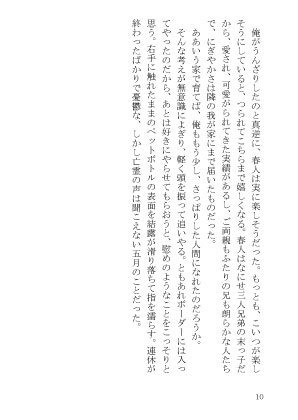 俺がうんざりしたのと真逆に、春人は実に楽しそうだった。もっとも、こいつが楽し
そうにしていると、つられてこちらまで嬉しくなる。春人はなにせ三人兄弟の末っ子だ
から、愛され、可愛がられてきた実績があるし、ご両親もふたりの兄も朗らかな人たち
で、にぎやかさは隣の我が家にまで届いたものだった。
ああいう家で育てば、俺ももう少し、さっぱりした人間になれたのだろうか。
そんな考えが無意識によぎり、軽く頭を振って追いやる。ともあれボーダーには入っ
てやったのだから、あとは好きにやらせてもらおうと、慰めのようなことをこっそりと
思う。右手に触れたままのペットボトルの表面を結露が滑り落ちて指を濡らす。連休が
終わったばかりで憂鬱な、しかし亡霊の声は聞こえない五月のことだった。
10